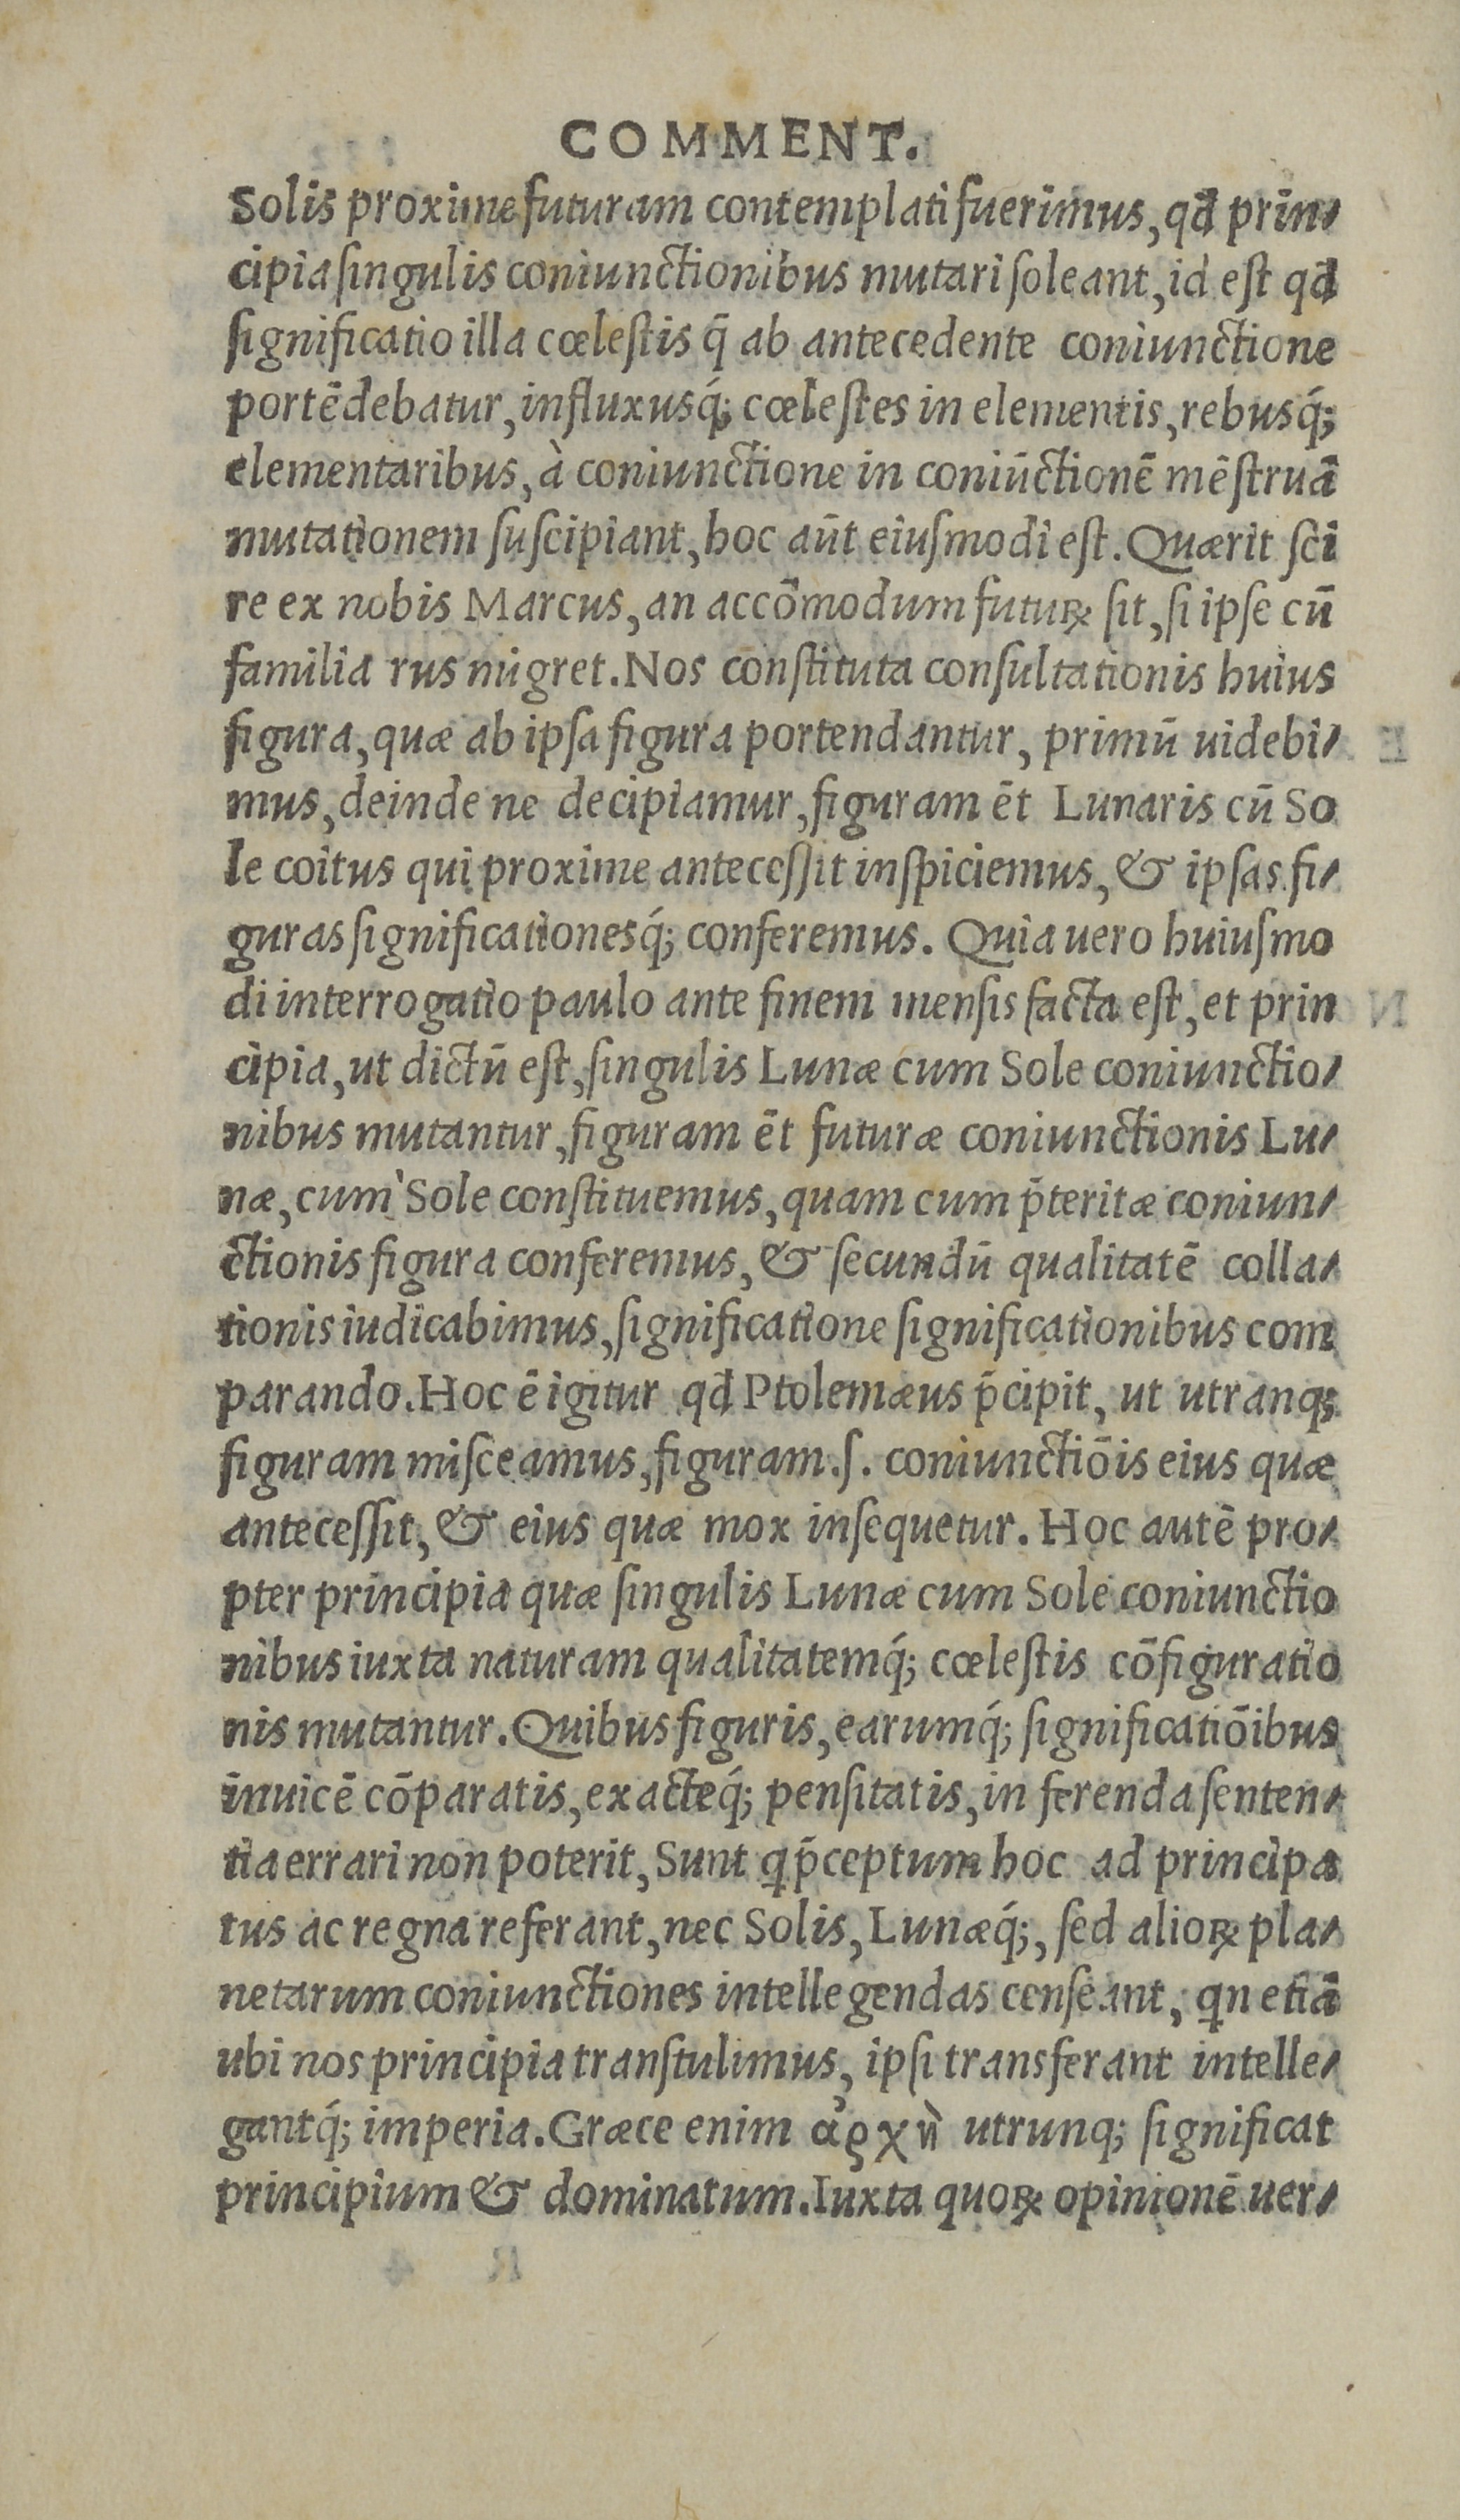 COMMENT.
Solis proxime futuram contemplati fuerimus, qđ prin⸗
cipia singulis coniunctionibus mutari soleant, id est qđ
significatio illa cœlestis q̃ ab antecedente coniunctione
portēdebatur, influxusq́; cœlestes in elementis, rebusq́;
elementaribus, à coniunctione in coniūctionē mēstruā
mutationem suscipiant, hoc aūt eiusmodi est. Quærit sci
re ex nobis Marcus, an accōmodum futuꝝ sit, si ipse cū
familia rus migret. Nos constituta consultationis huius
figura, quæ ab ipsa figura portendantur, primū uidebi⸗
mus, deinde ne decipiamur, figuram ēt Lunaris cū So
le coitus qui proxime antecessit inspiciemus, & ipsas fi⸗
guras significationesq́; conferemus. Quia uero huiusmo
di interrogatio paulo ante finem mensis facta est, et prin
cipia, ut dictū est, singulis Lunæ cum Sole coniunctio⸗
nibus mutantur, figuram ēt futuræ coniunctionis Lu⸗
næ, cum Sole constituemus, quam cum p̄teritæ coniun⸗
ctionis figura conferemus, & secundū qualitatē colla⸗
tionis iudicabimus, significatione significationibus com
parando. Hoc ē igitur qđ Ptolemæus p̄cipit, ut utranq;
figuram misceamus, figuram .s. coniunctiōis eius quæ
antecessit, & eius quæ mox insequetur. Hoc autē pro⸗
pter principia quæ singulis Lunæ cum Sole coniunctio
nibus iuxta naturam qualitatemq́; cœlestis cōfiguratio
nis mutantur. Quibus figuris, earumq́; significatiōibus
inuicē cōparatis, exacteq́; pensitatis, in ferenda senten⸗
tia errari non poterit, Sunt ꝗ p̄ceptum hoc ad principa
tus ac regna referant, nec Solis, Lunæq́;, sed alioꝝ pla⸗
netarum coniunctiones intellegendas censeant, ꝗn etiā
ubi nos principia transtulimus, ipsi transferant intelle⸗
gantq́; imperia. Græce enim ἀρχὴ utrunq; significat
principium & dominatum. Iuxta quoꝝ opinionē uer⸗